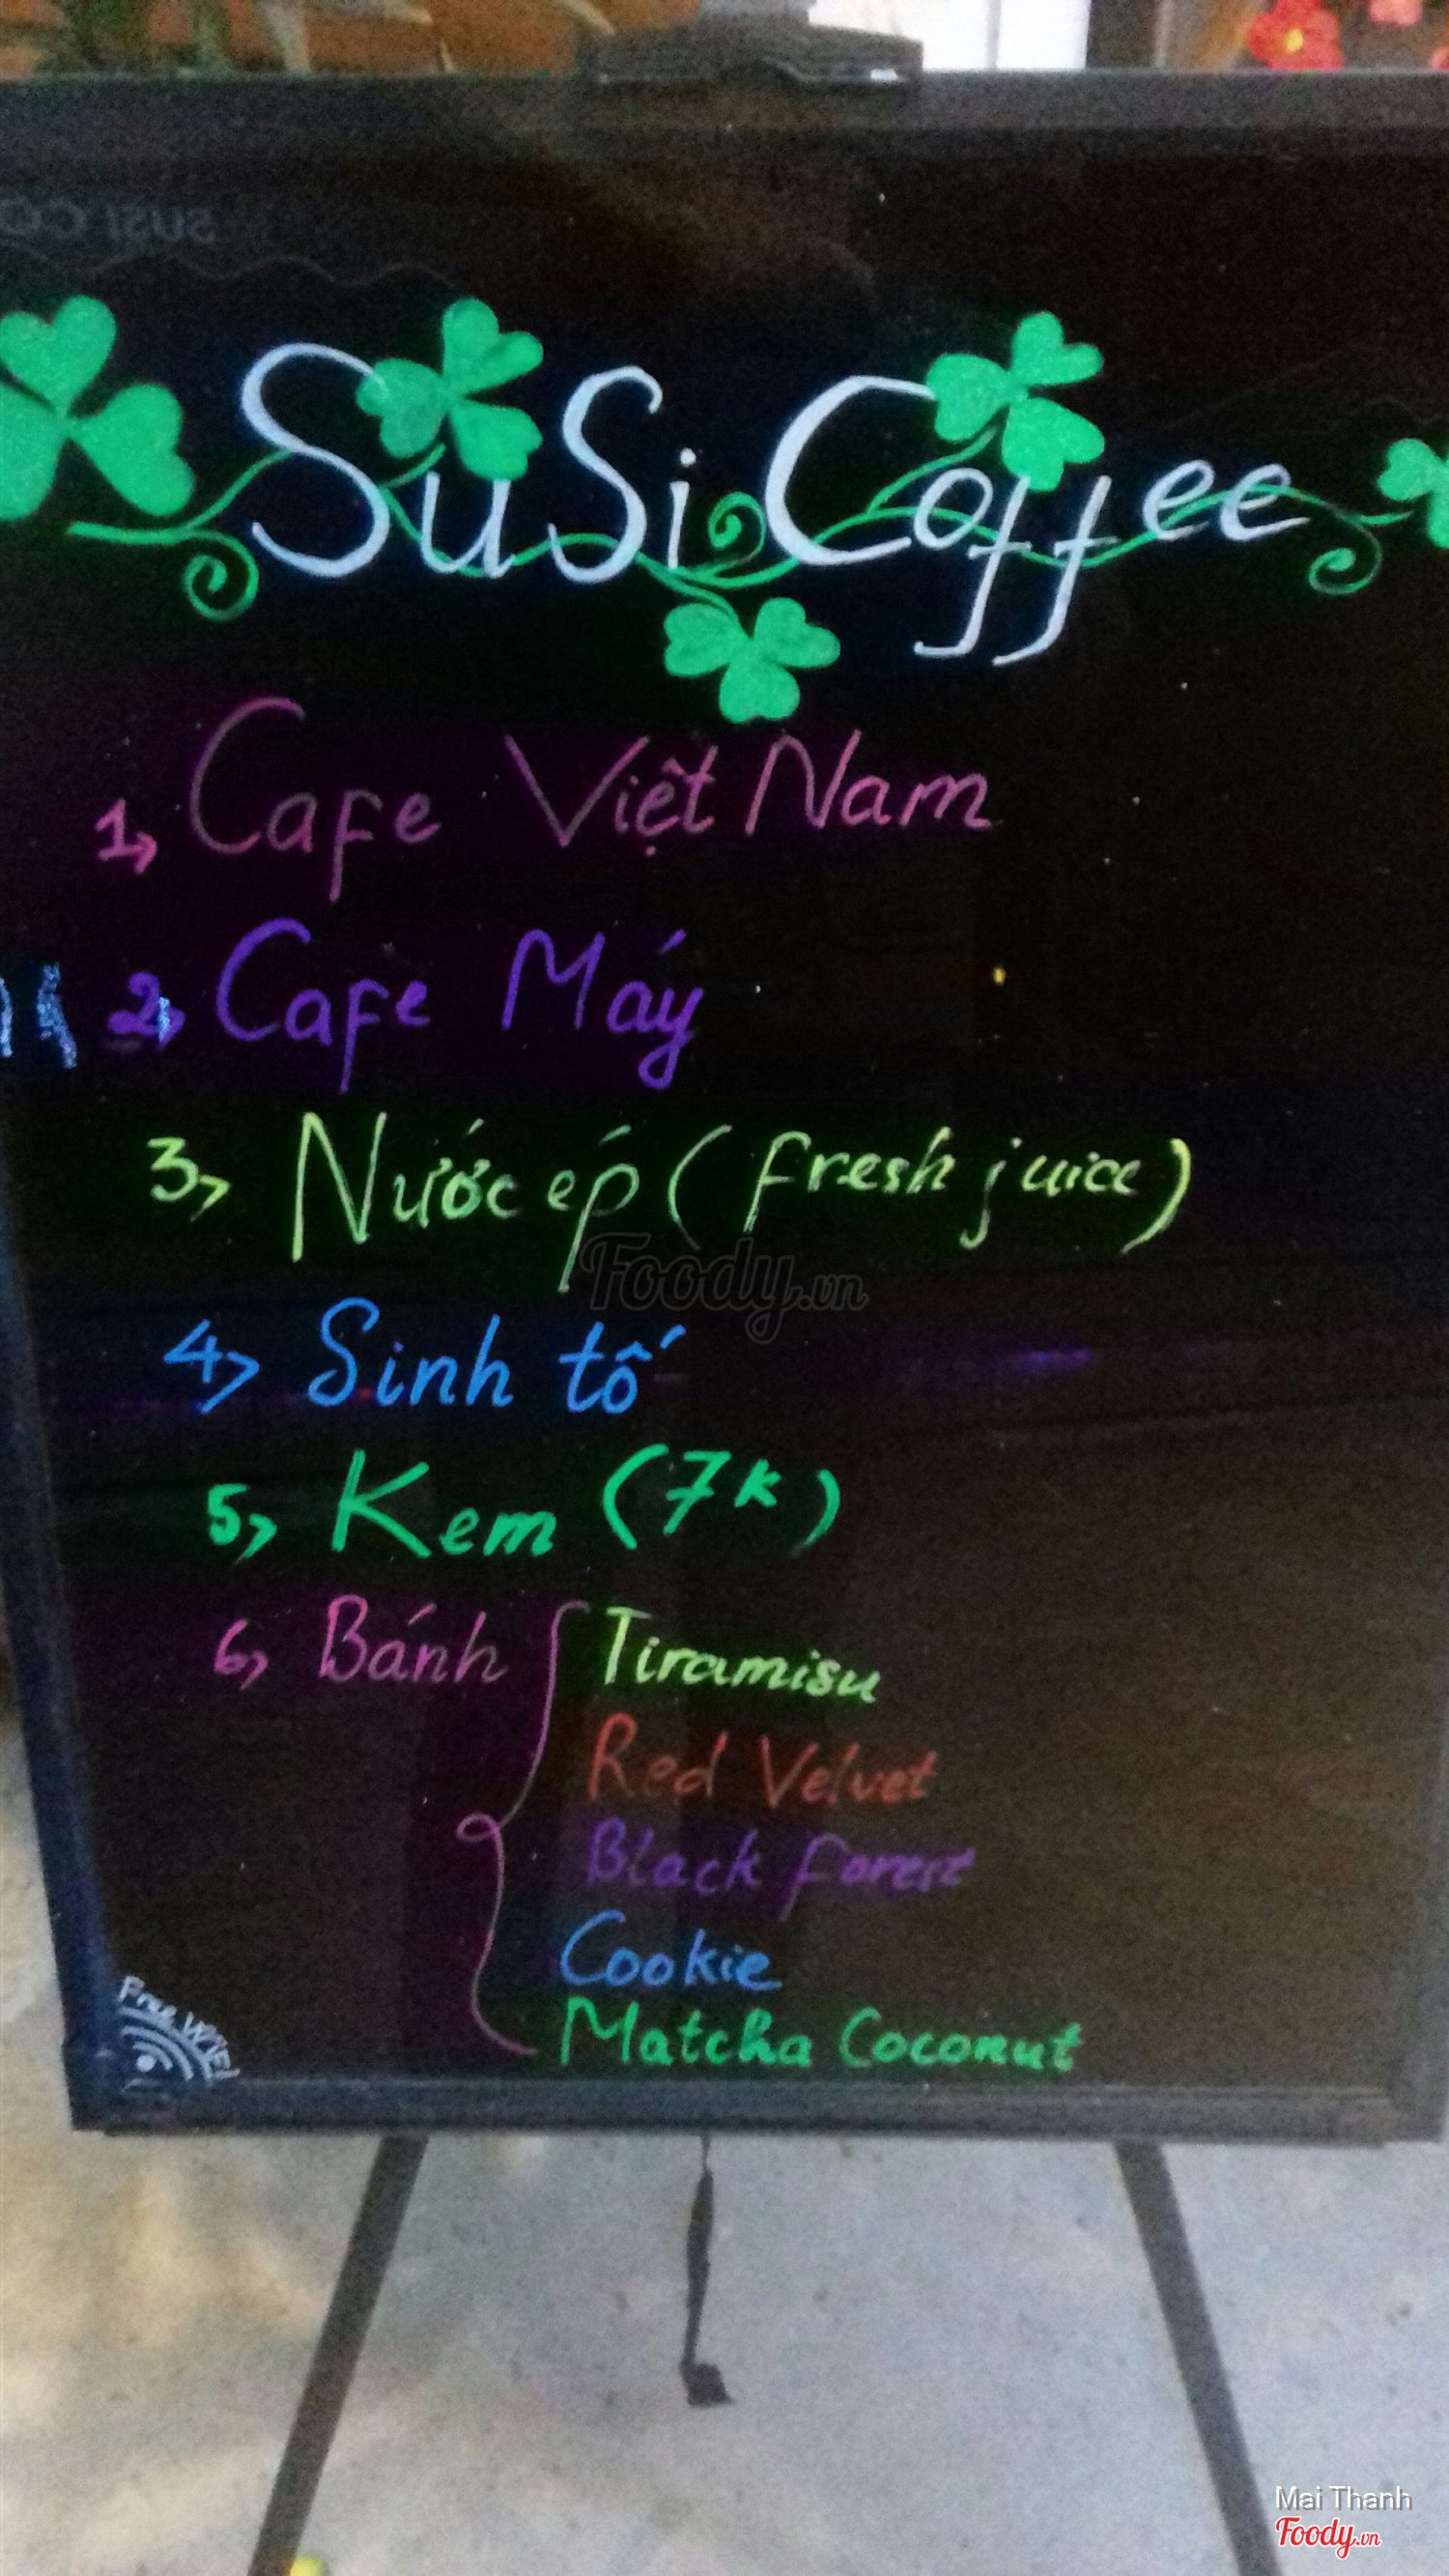 SUSI CO
SuSi Coffee
1, Cafe Việt Nam
2, Cafe Máy
3, Nước ép (fresh juice)
4, Sinh tố
5, Kem (7k)
6, Bánh { Tiramisu
Red Velvet
Black forest
Cookie
Matcha Coconut
Free Wifi
Foody.vn
Mai Thanh
Foody.vn